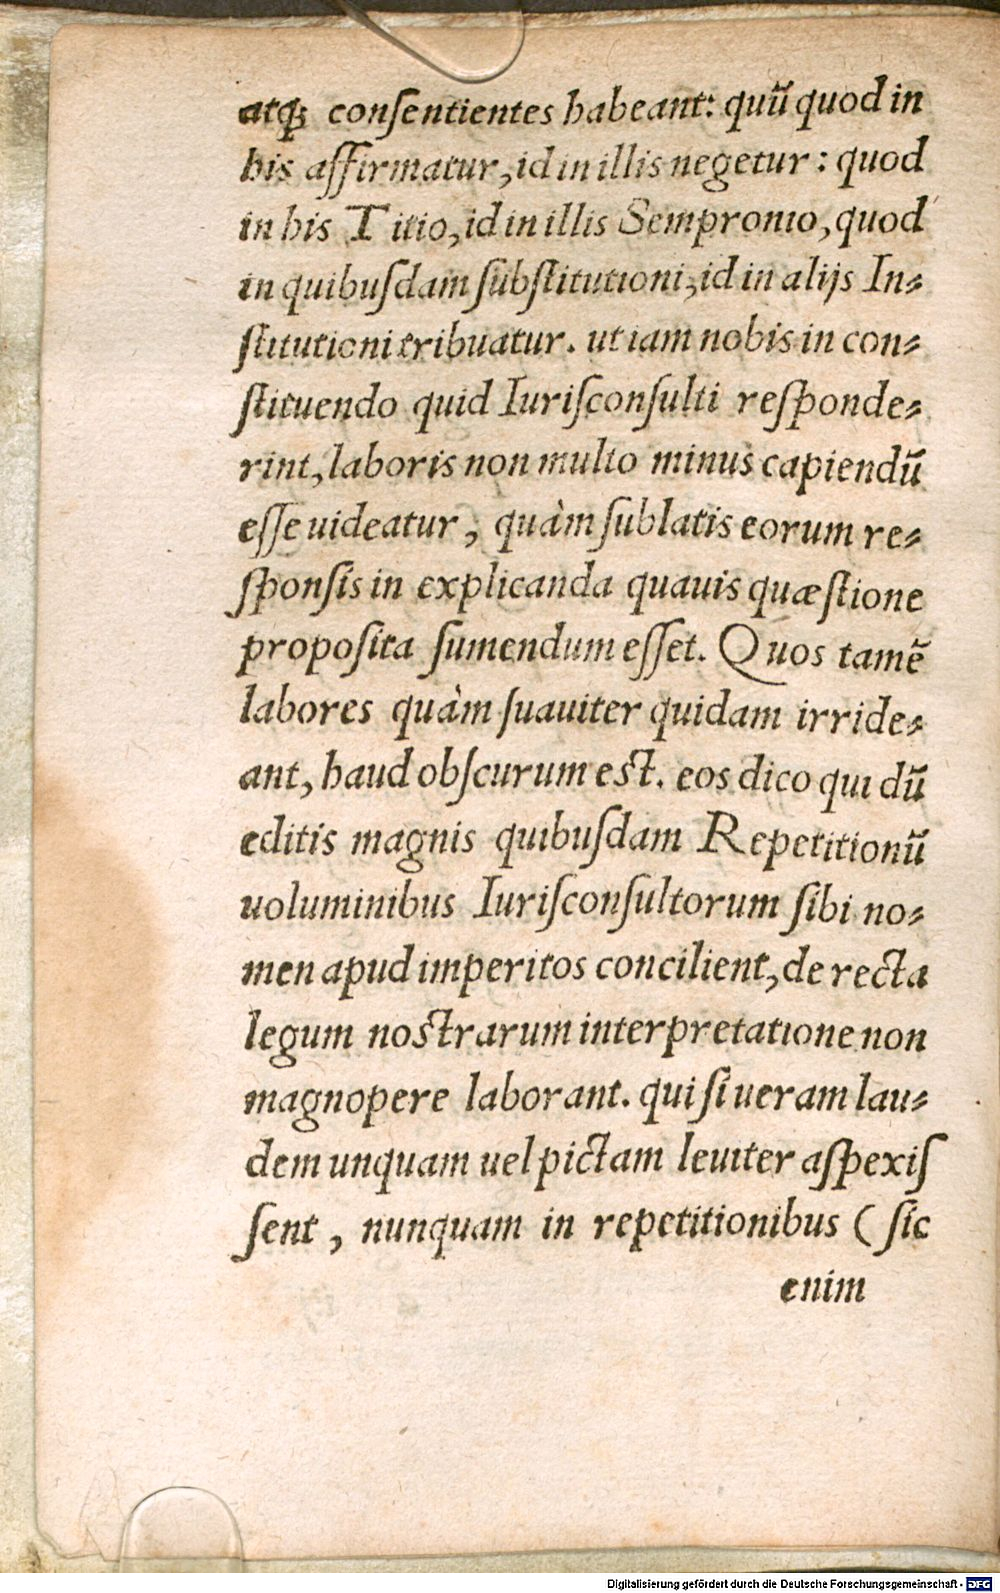 atq; conſentientes habeant: quũ quod in
his affirmatur, id in illis negetur: quod
in his Titio, id in illis Sempronio, quod
in quibuſdam ſubſtitutioni, id in alijs In-
ſtitutioni tribuatur. ut iam nobis in con-
ſtituendo quid Iuriſconſulti reſponde-
rint, laboris non multo minus capiendũ
eſſe uideatur, quàm ſublatis eorum re-
ſponſis in explicanda quauis quæſtione
propoſita ſumendum eſſet. Quos tamẽ
labores quàm ſuauiter quidam irride-
ant, haud obſcurum est. eos dico qui dũ
editis magnis quibuſdam Repetitionũ
uoluminibus Iuriſconſultorum ſibi no-
men apud imperitos concilient, de recta
legum nostrarum interpretatione non
magnopere laborant. qui ſi ueram lau-
dem unquam uel pictam leuiter aſpexiſ
ſent, nunquam in repetitionibus (ſic
enim
Digitalisierung gefördert durch die Deutsche Forschungsgemeinschaft - DFG